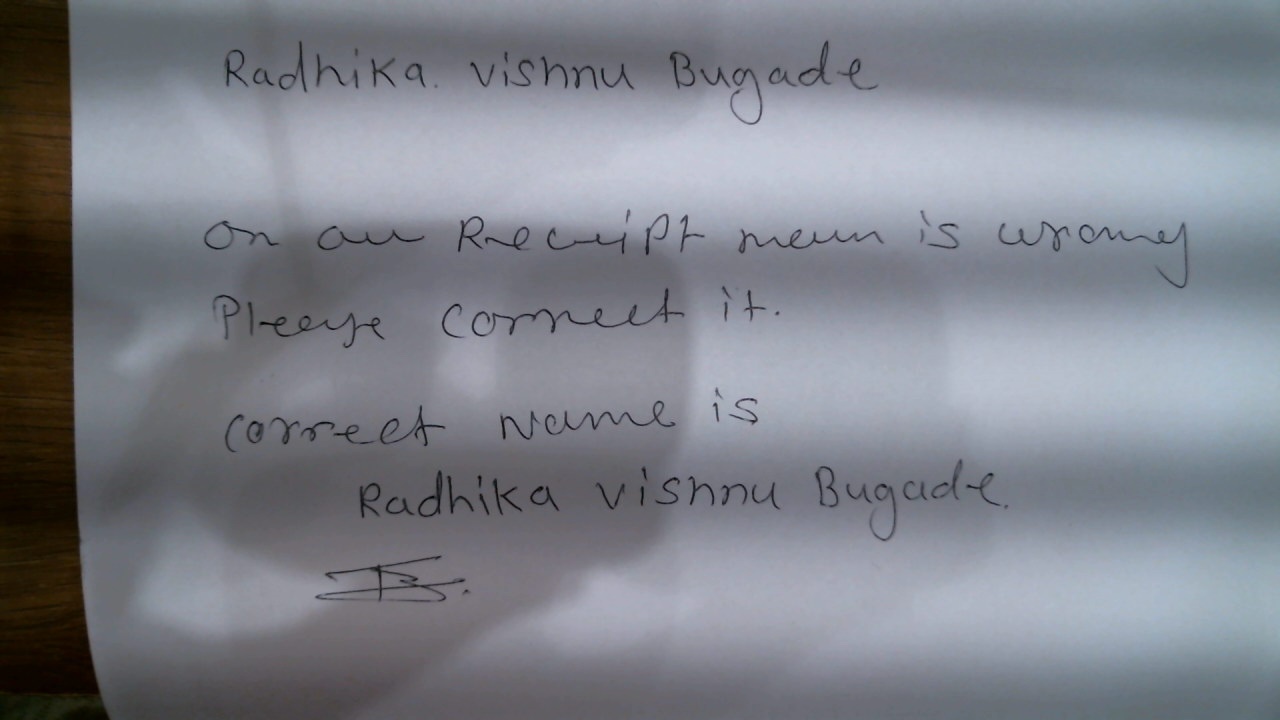 Radhika. Vishnu Bugade
on our Receipt name is wrong
Please correct it.
correct name is
Radhika Vishnu Bugade.